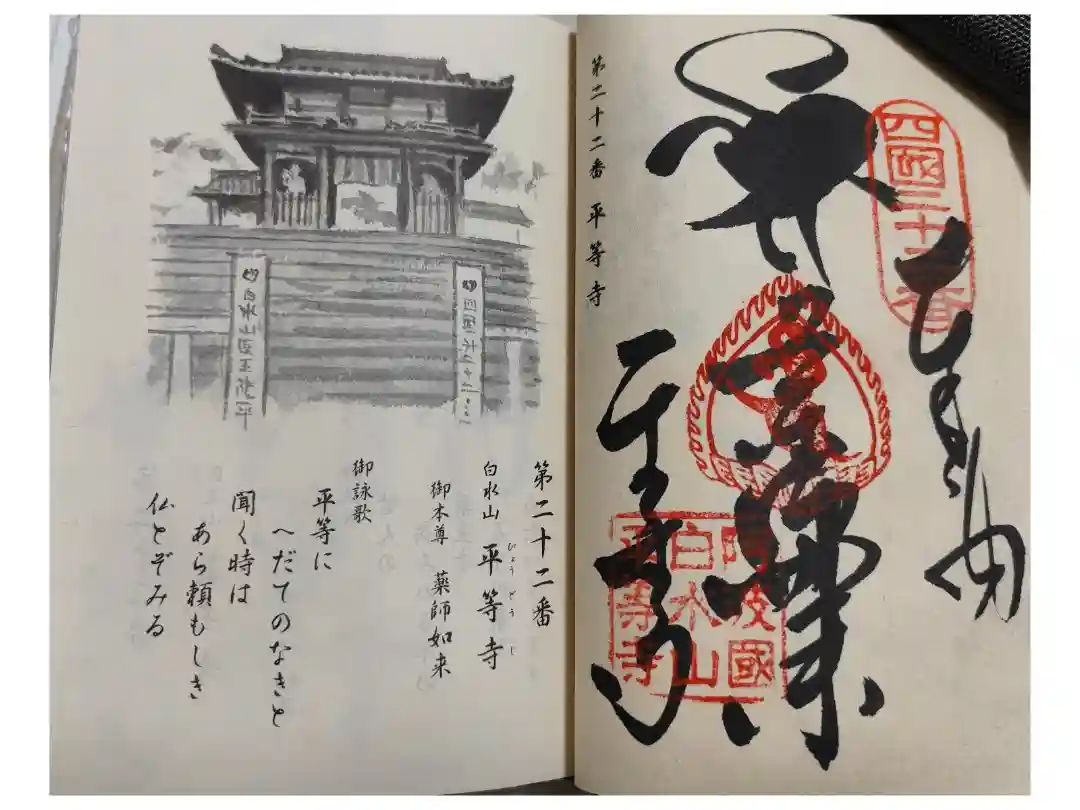 第二十二番 平等寺
四國二十二番
奉納
薬師
平等寺
阿波國
白水山
平等寺
第二十二番
白水山 平等寺
びょうどうじ
御本尊 薬師如来
御詠歌
平等に
へだてのなきと
聞く時は
あら頼もしき
仏とぞみる